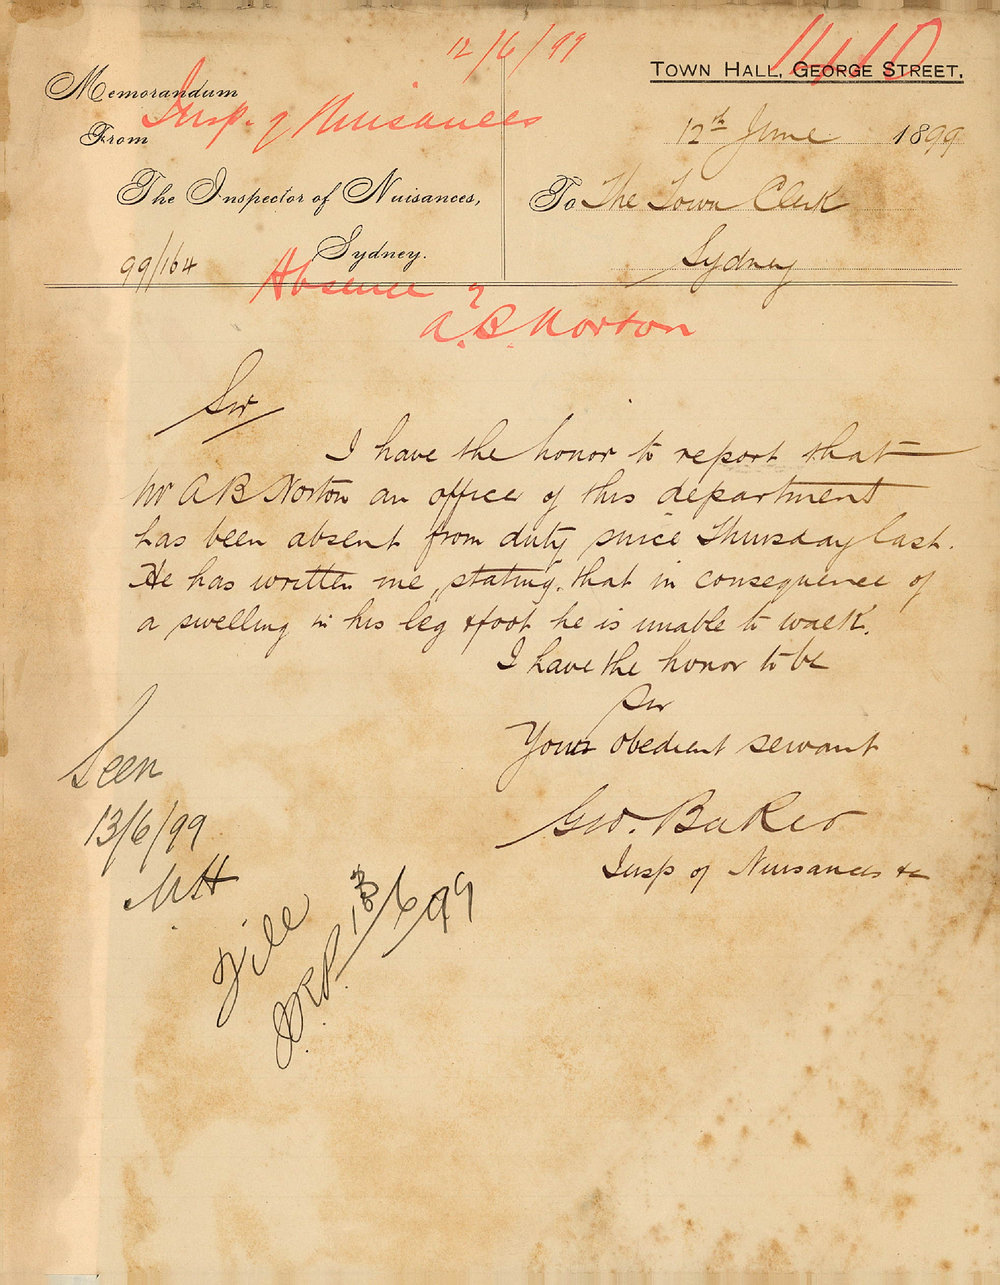 12/6/99
1410
TOWN HALL, GEORGE STREET.
Memorandum
Insp. of Nuisances
From
12th June 1899
The Inspector of Nuisances,
To The Town Clerk
Sydney.
Sydney
99/164
Absence of
A.B. Norton
Sir
I have the honor to report that
Mr A B Norton an officer of this department
has been absent from duty since Thursday last.
He has written me, stating, that in consequence of
a swelling in his leg & foot he is unable to walk.
I have the honor to be
Sir
Your obedient servant
Geo. Baker
Insp of Nuisances &c
Seen
13/6/99
File
13/6/99